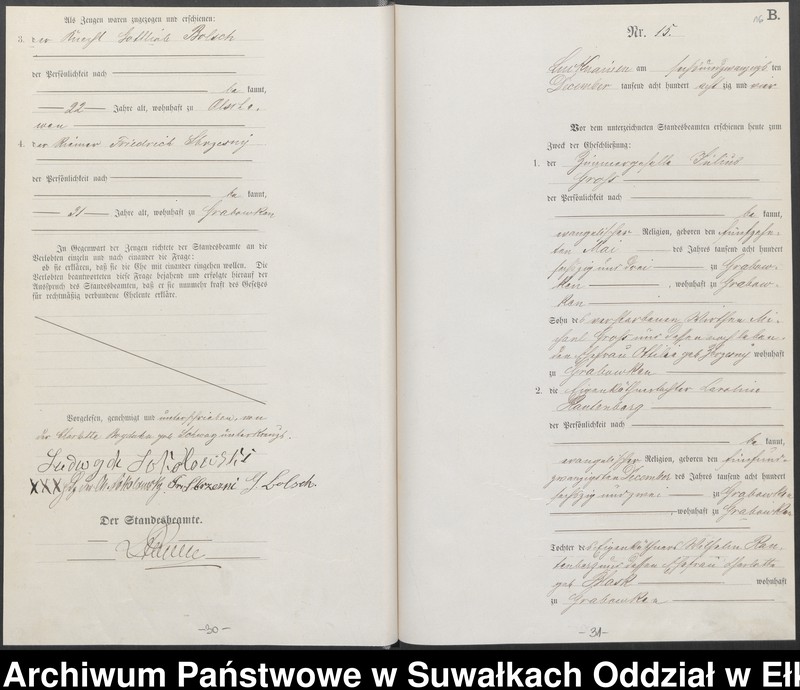 Als Zeugen waren zugezogen und erschienen:
3. der Knecht Gottlieb Bolsch
der Persönlichkeit nach
be kannt,
22 Jahre alt, wohnhaft zu Olsche-
wen
4. der Friedrich Skrzesny
der Persönlichkeit nach
be kannt,
31 Jahre alt, wohnhaft zu Grabowken
In Gegenwart der Zeugen richtete der Standesbeamte an die
Verlobten einzeln und nach einander die Frage:
ob sie erklären, daß sie die Ehe mit einander eingehen wollen. Die
Verlobten beantworteten diese Frage bejahend und erfolgte hierauf der
Ausspruch des Standesbeamten, daß er sie nunmehr kraft des Gesetzes
für rechtmäßig verbundene Eheleute erkläre.
Vorgelesen, genehmigt und unterschrieben, von
der Charlotte geb. unterkreuzt.
Ludwig Sokolowski
XXX G. Bolsch.
Der Standesbeamte.
-30-
B.
Nr. 15.
am sechsundzwanzigsten
December tausend acht hundert acht zig und vier
Vor dem unterzeichneten Standesbeamten erschienen heute zum
Zweck der Eheschließung:
1. der Zimmergeselle Julius
Groß
der Persönlichkeit nach
be kannt,
evangelischer Religion, geboren den fünfzehn-
ten Mai des Jahres tausend acht hundert
sechszig und drei zu Grabow-
ken, wohnhaft zu Grabow-
ken
Sohn des verstorbenen Wirthen Mi-
chael Groß und dessen noch leben-
den Ehefrau Ottilie geb. Skrzesny wohnhaft
zu Grabowken
2. die Eigenkäthnertochter Caroline
Rautenberg
der Persönlichkeit nach
be kannt,
evangelischer Religion, geboren den fünfund-
zwanzigsten December des Jahres tausend acht hundert
sechszig und zwei zu Grabowken
, wohnhaft zu Grabowken
Tochter des Eigenkäthners Wilhelm Rau-
tenberg und dessen Ehefrau Charlotte
geb. wohnhaft
zu Grabowken
-31-
Archiwum Państwowe w Suwałkach Oddział w Ełk